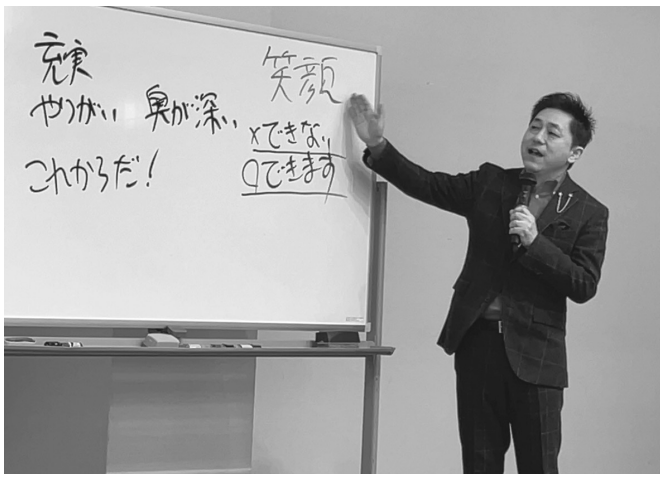 充実
やりがい 奥が深い
これからだ！
笑顔
×できない
○できます